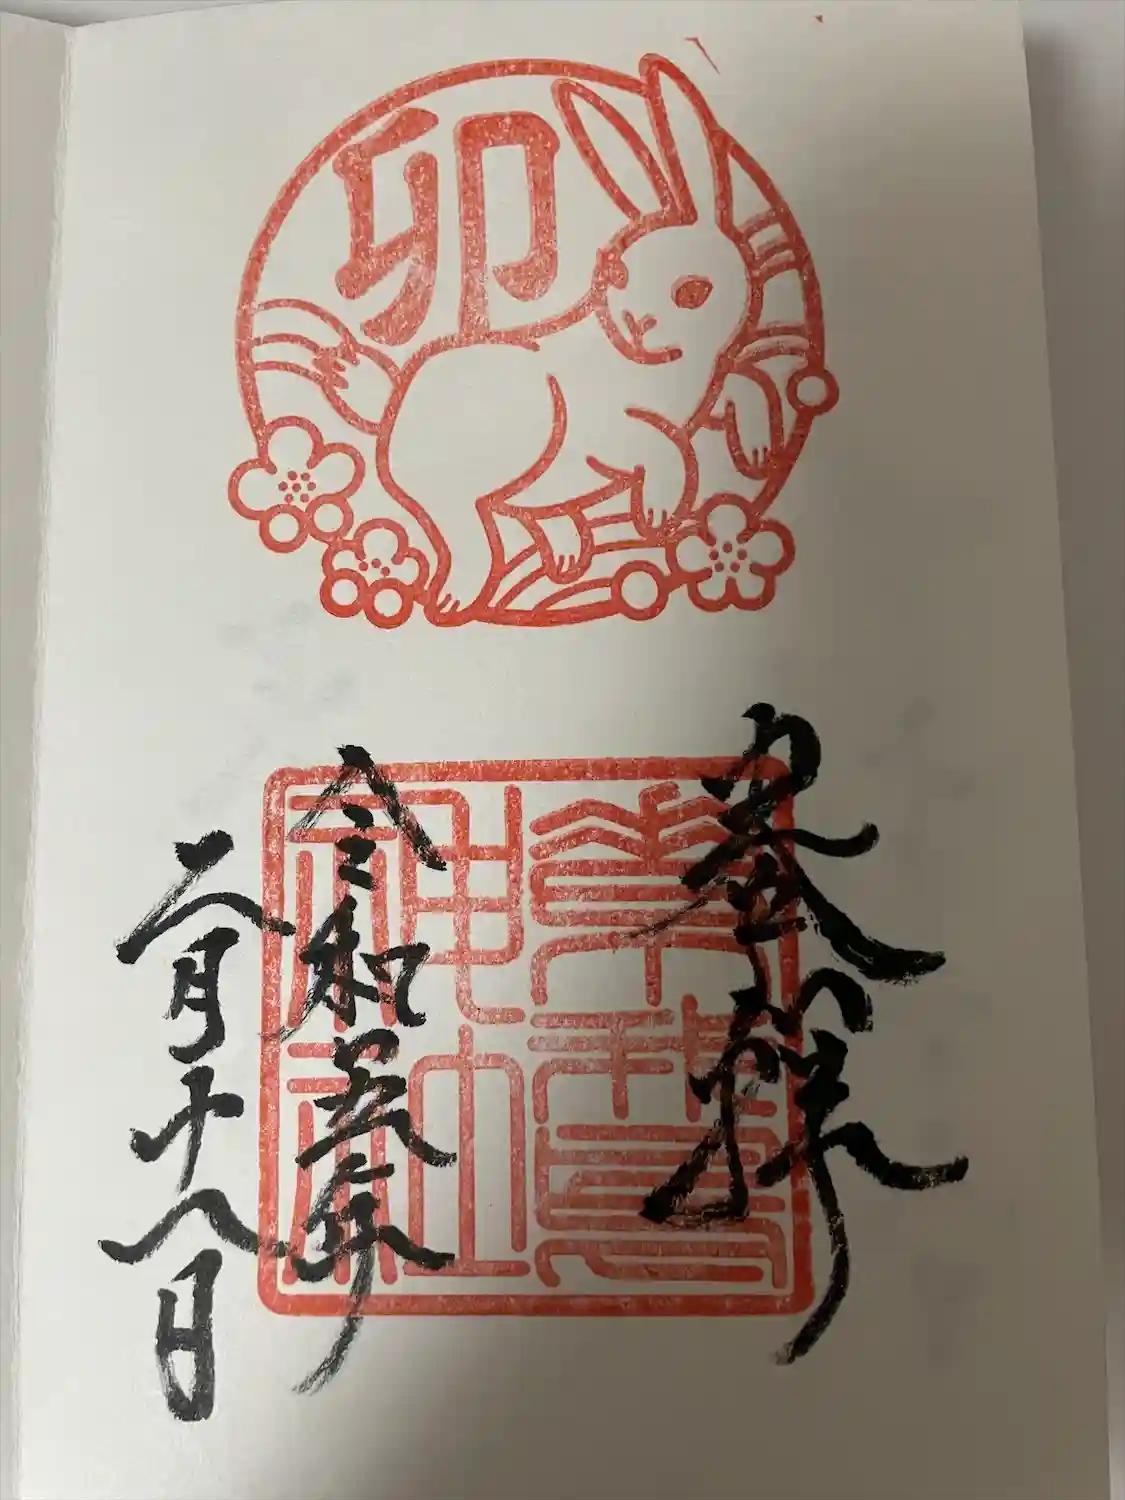 卯
奉拝
令和五年
二月十八日